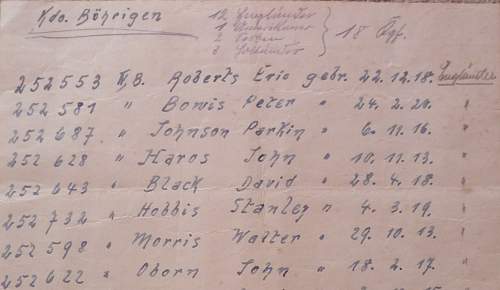 Kdo. Böhrigen
12 Engländer
1 Amerikaner
2
3
18 Kgf.
252553 IV,B. Roberts Eric gebr. 22.12.18. Engländer
252581 " Bowis Peter " 24.2.20. "
252687 " Johnson Parkin " 6.11.16. "
252628 " Haros John " 10.11.13. "
252643 " Black David " 28.4.18. "
252732 " Hobbis Stanley " 4.3.19. "
252598 " Morris Walter " 29.10.13. "
252622 " Oborn John " 18.2.17. "